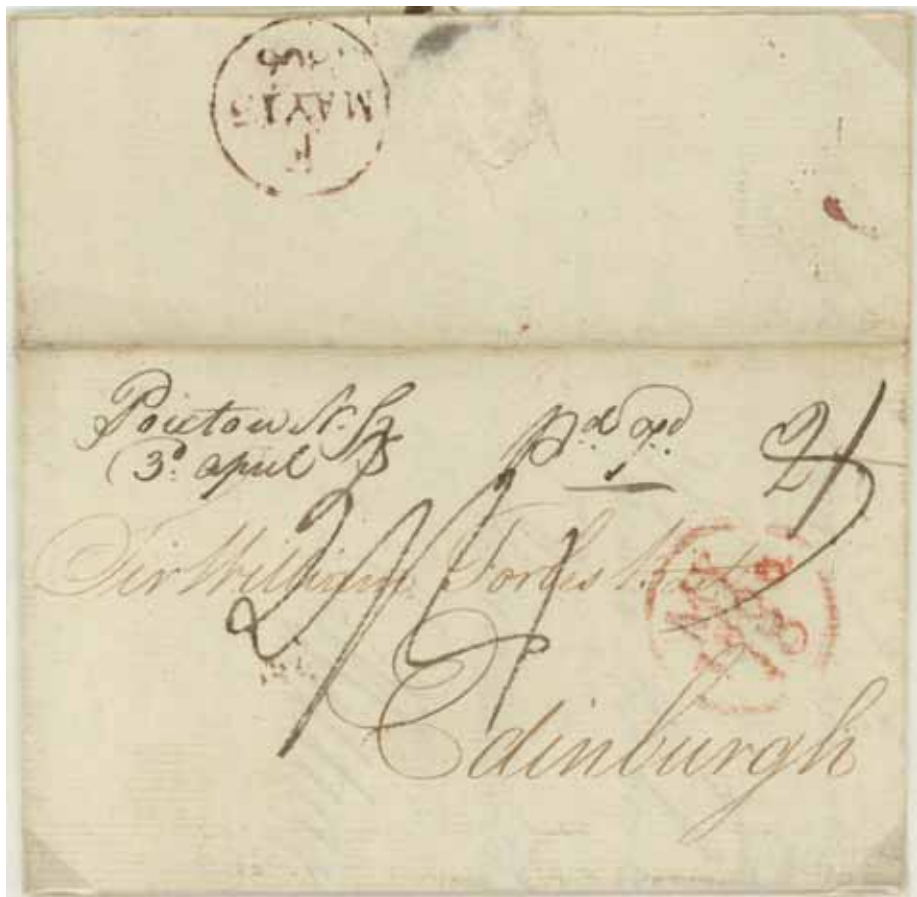 F
MAY 15
1806
Pictou N. S.
3d. april
Pd. 9d.
2/
2/4
Sir William Forbes
Edinburgh